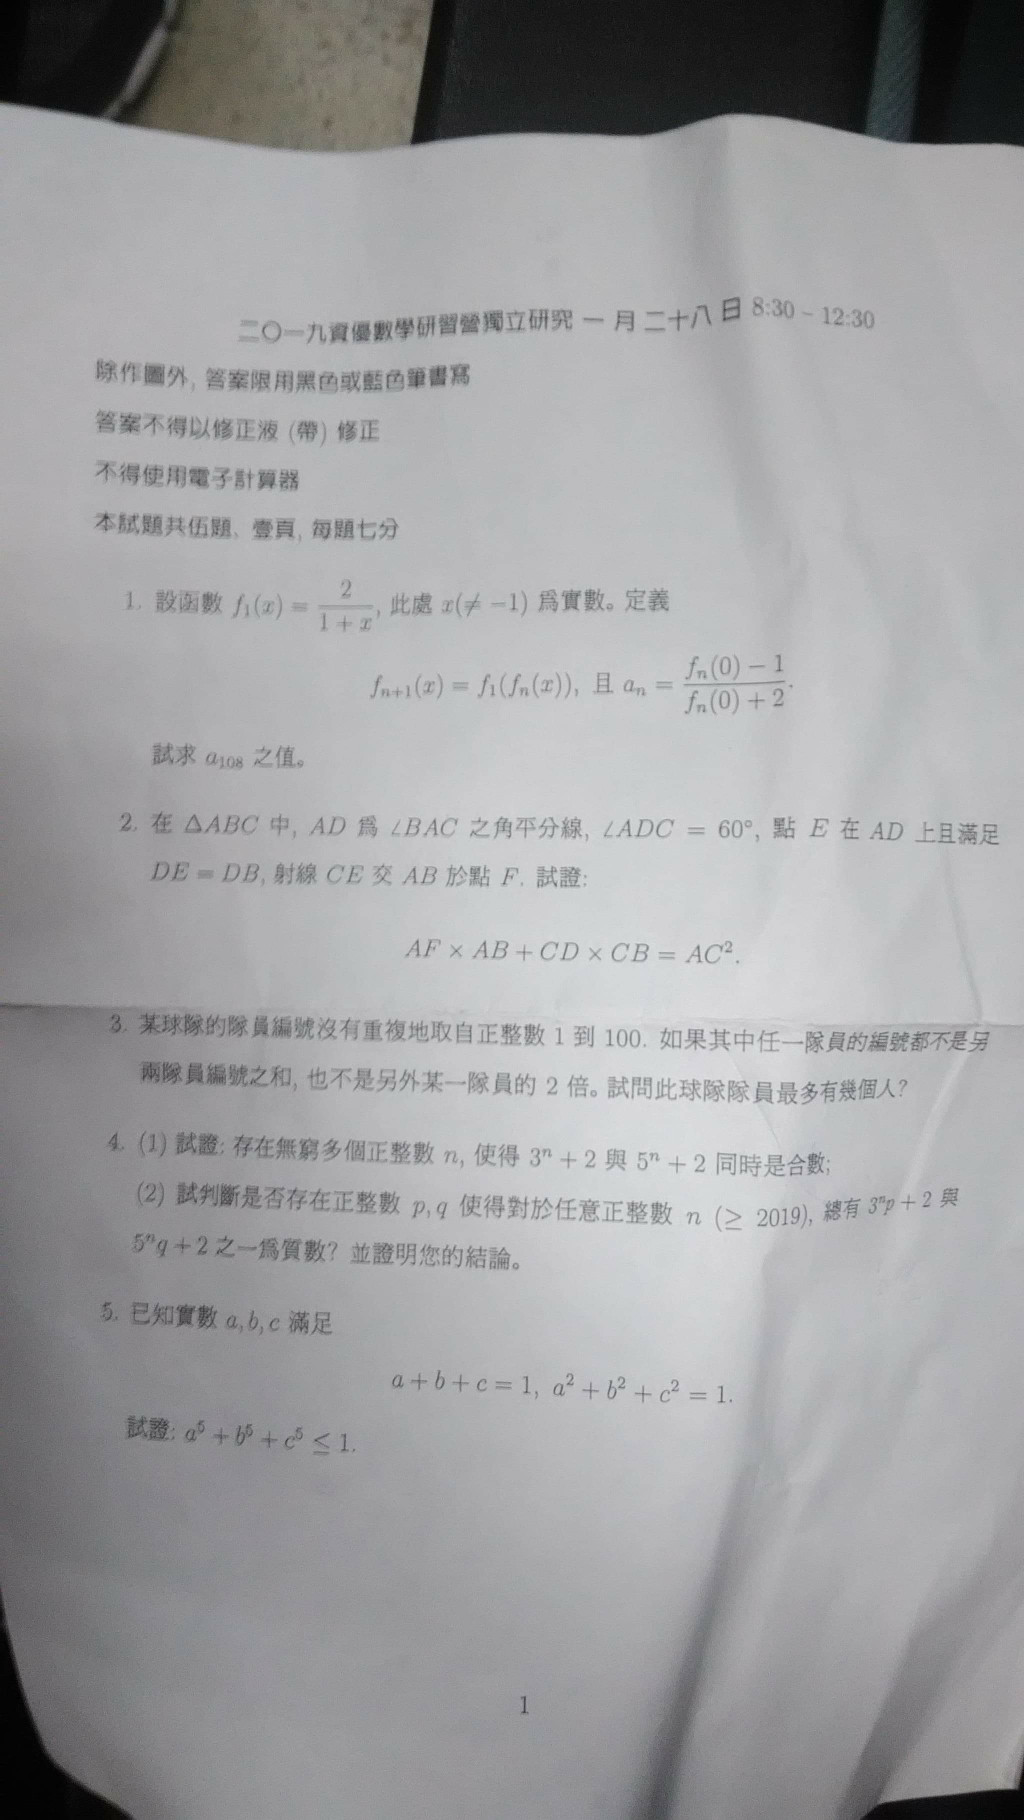 二〇一九資優數學研習營獨立研究 一 月 二十八 日 8:30 ~ 12:30
除作圖外, 答案限用黑色或藍色筆書寫
答案不得以修正液 (帶) 修正
不得使用電子計算器
本試題共伍題、壹頁, 每題七分
1. 設函數 f₁(x) = 2/(1 + x), 此處 x(≠ −1) 爲實數。定義
fₙ₊₁(x) = f₁(fₙ(x)), 且 aₙ = (fₙ(0) − 1)/(fₙ(0) + 2).
試求 a₁₀₈ 之值。
2. 在 ΔABC 中, AD 爲 ∠BAC 之角平分線, ∠ADC = 60°, 點 E 在 AD 上且滿足
DE = DB, 射線 CE 交 AB 於點 F. 試證:
AF × AB + CD × CB = AC².
3. 某球隊的隊員編號沒有重複地取自正整數 1 到 100. 如果其中任一隊員的編號都不是另
兩隊員編號之和, 也不是另外某一隊員的 2 倍。試問此球隊隊員最多有幾個人?
4. (1) 試證: 存在無窮多個正整數 n, 使得 3ⁿ + 2 與 5ⁿ + 2 同時是合數;
(2) 試判斷是否存在正整數 p, q 使得對於任意正整數 n (≥ 2019), 總有 3ⁿp + 2 與
5ⁿq + 2 之一爲質數? 並證明您的結論。
5. 已知實數 a, b, c 滿足
a + b + c = 1, a² + b² + c² = 1.
試證: a⁵ + b⁵ + c⁵ ≤ 1.
1